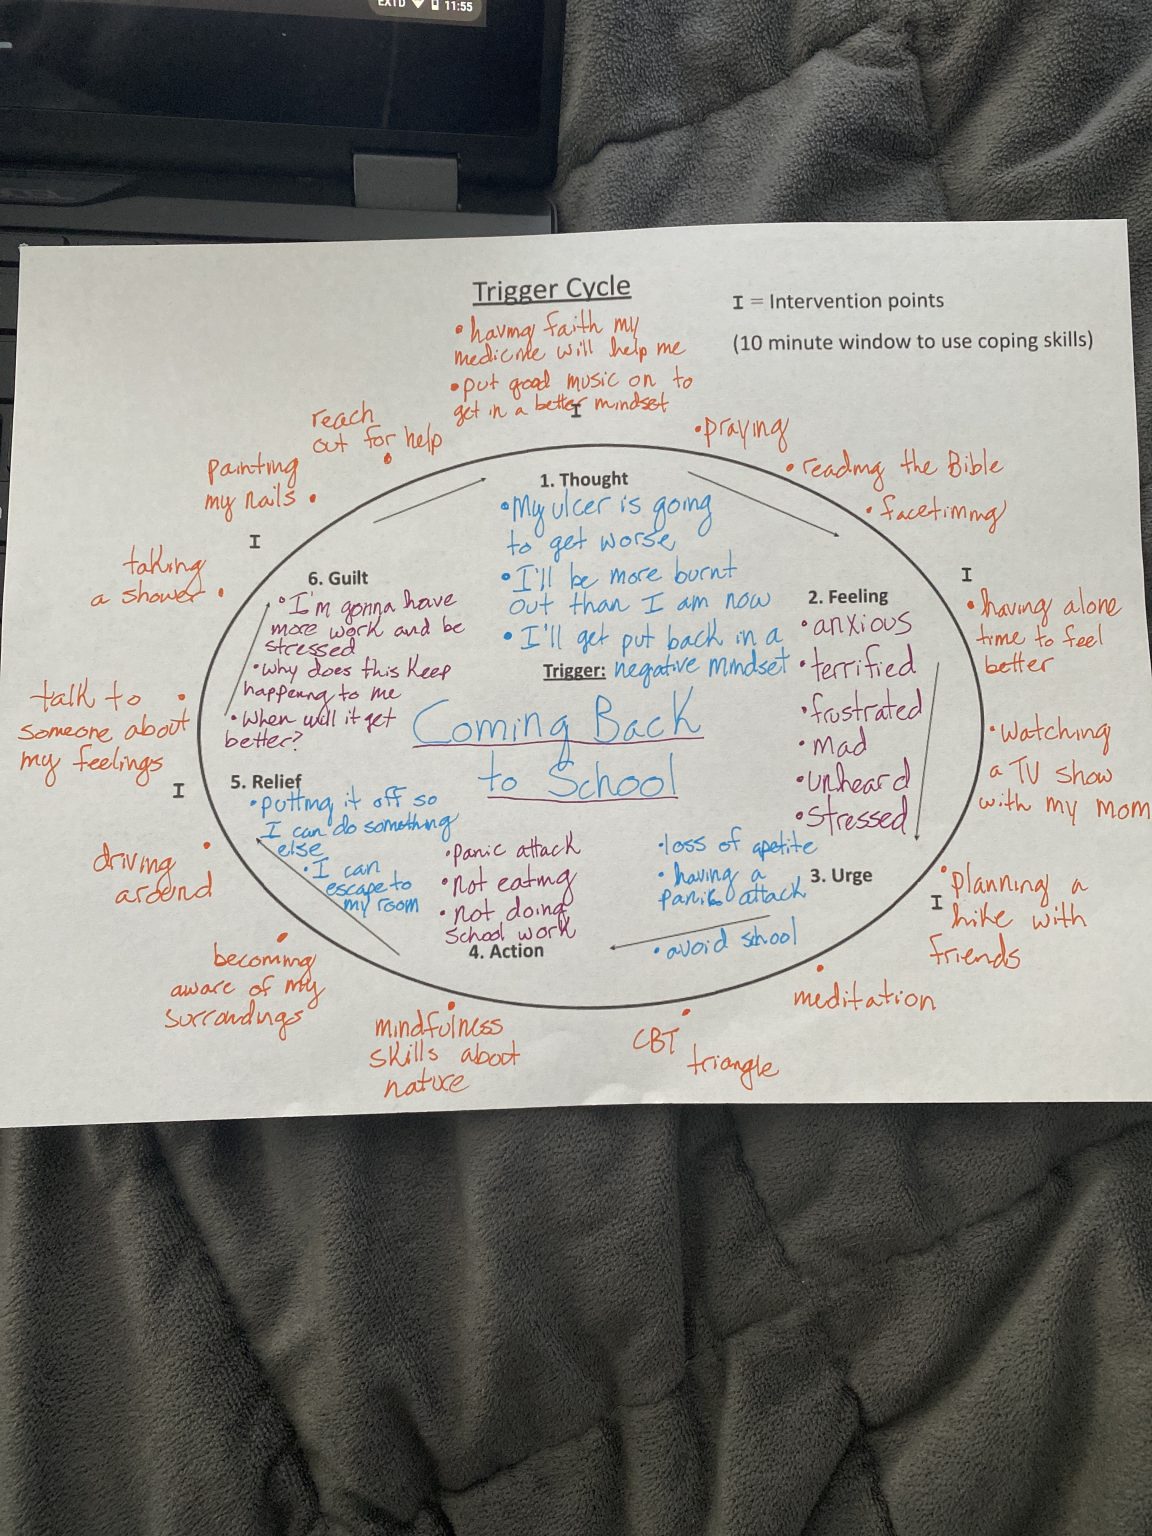 EXTD 11:55
Trigger Cycle
I = Intervention points
(10 minute window to use coping skills)
• having faith my
medicine will help me
• put good music on to
get in a better mindset
I
reach
out for help
painting
my nails
I
taking
a shower
talk to
someone about
my feelings
I
driving
around
becoming
aware of my
surroundings
mindfulness
skills about
nature
CBT
triangle
meditation
I
• planning a
hike with
friends
• watching
a TV show
with my mom
• having alone
time to feel
better
I
• facetiming
• reading the Bible
• praying
1. Thought
• My ulcer is going
to get worse
• I'll be more burnt
out than I am now
• I'll get put back in a
negative mindset
Trigger:
Coming Back
to School
2. Feeling
• anxious
• terrified
• frustrated
• mad
• unheard
• stressed
3. Urge
• loss of apetite
• having a
panic attack
• avoid school
4. Action
• panic attack
• not eating
• not doing
school work
5. Relief
• putting it off so
I can do something
else
• I can
escape to
my room
6. Guilt
• I'm gonna have
more work and be
stressed
• why does this keep
happening to me
• when will it get
better?